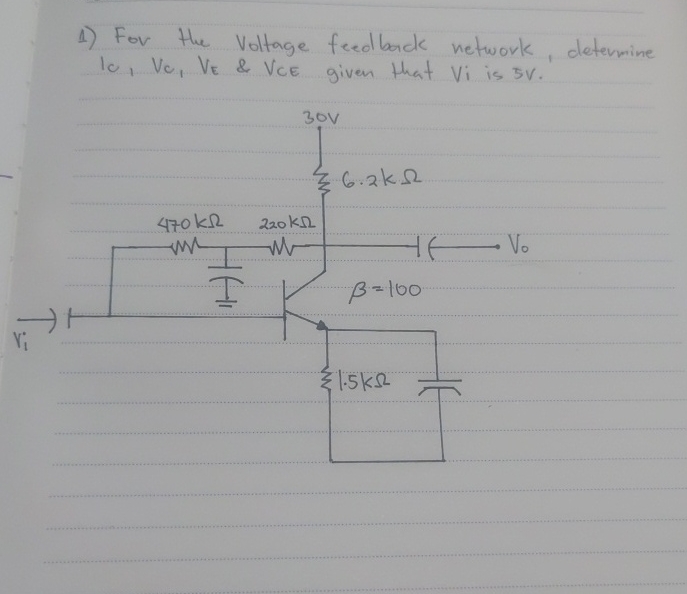 1) For the Voltage feedback network, determine
Ic, Vc, VE & VCE given that Vi is 5V.
30V
6.2kΩ
470kΩ 220kΩ
Vo
β=100
Vi
1.5kΩ